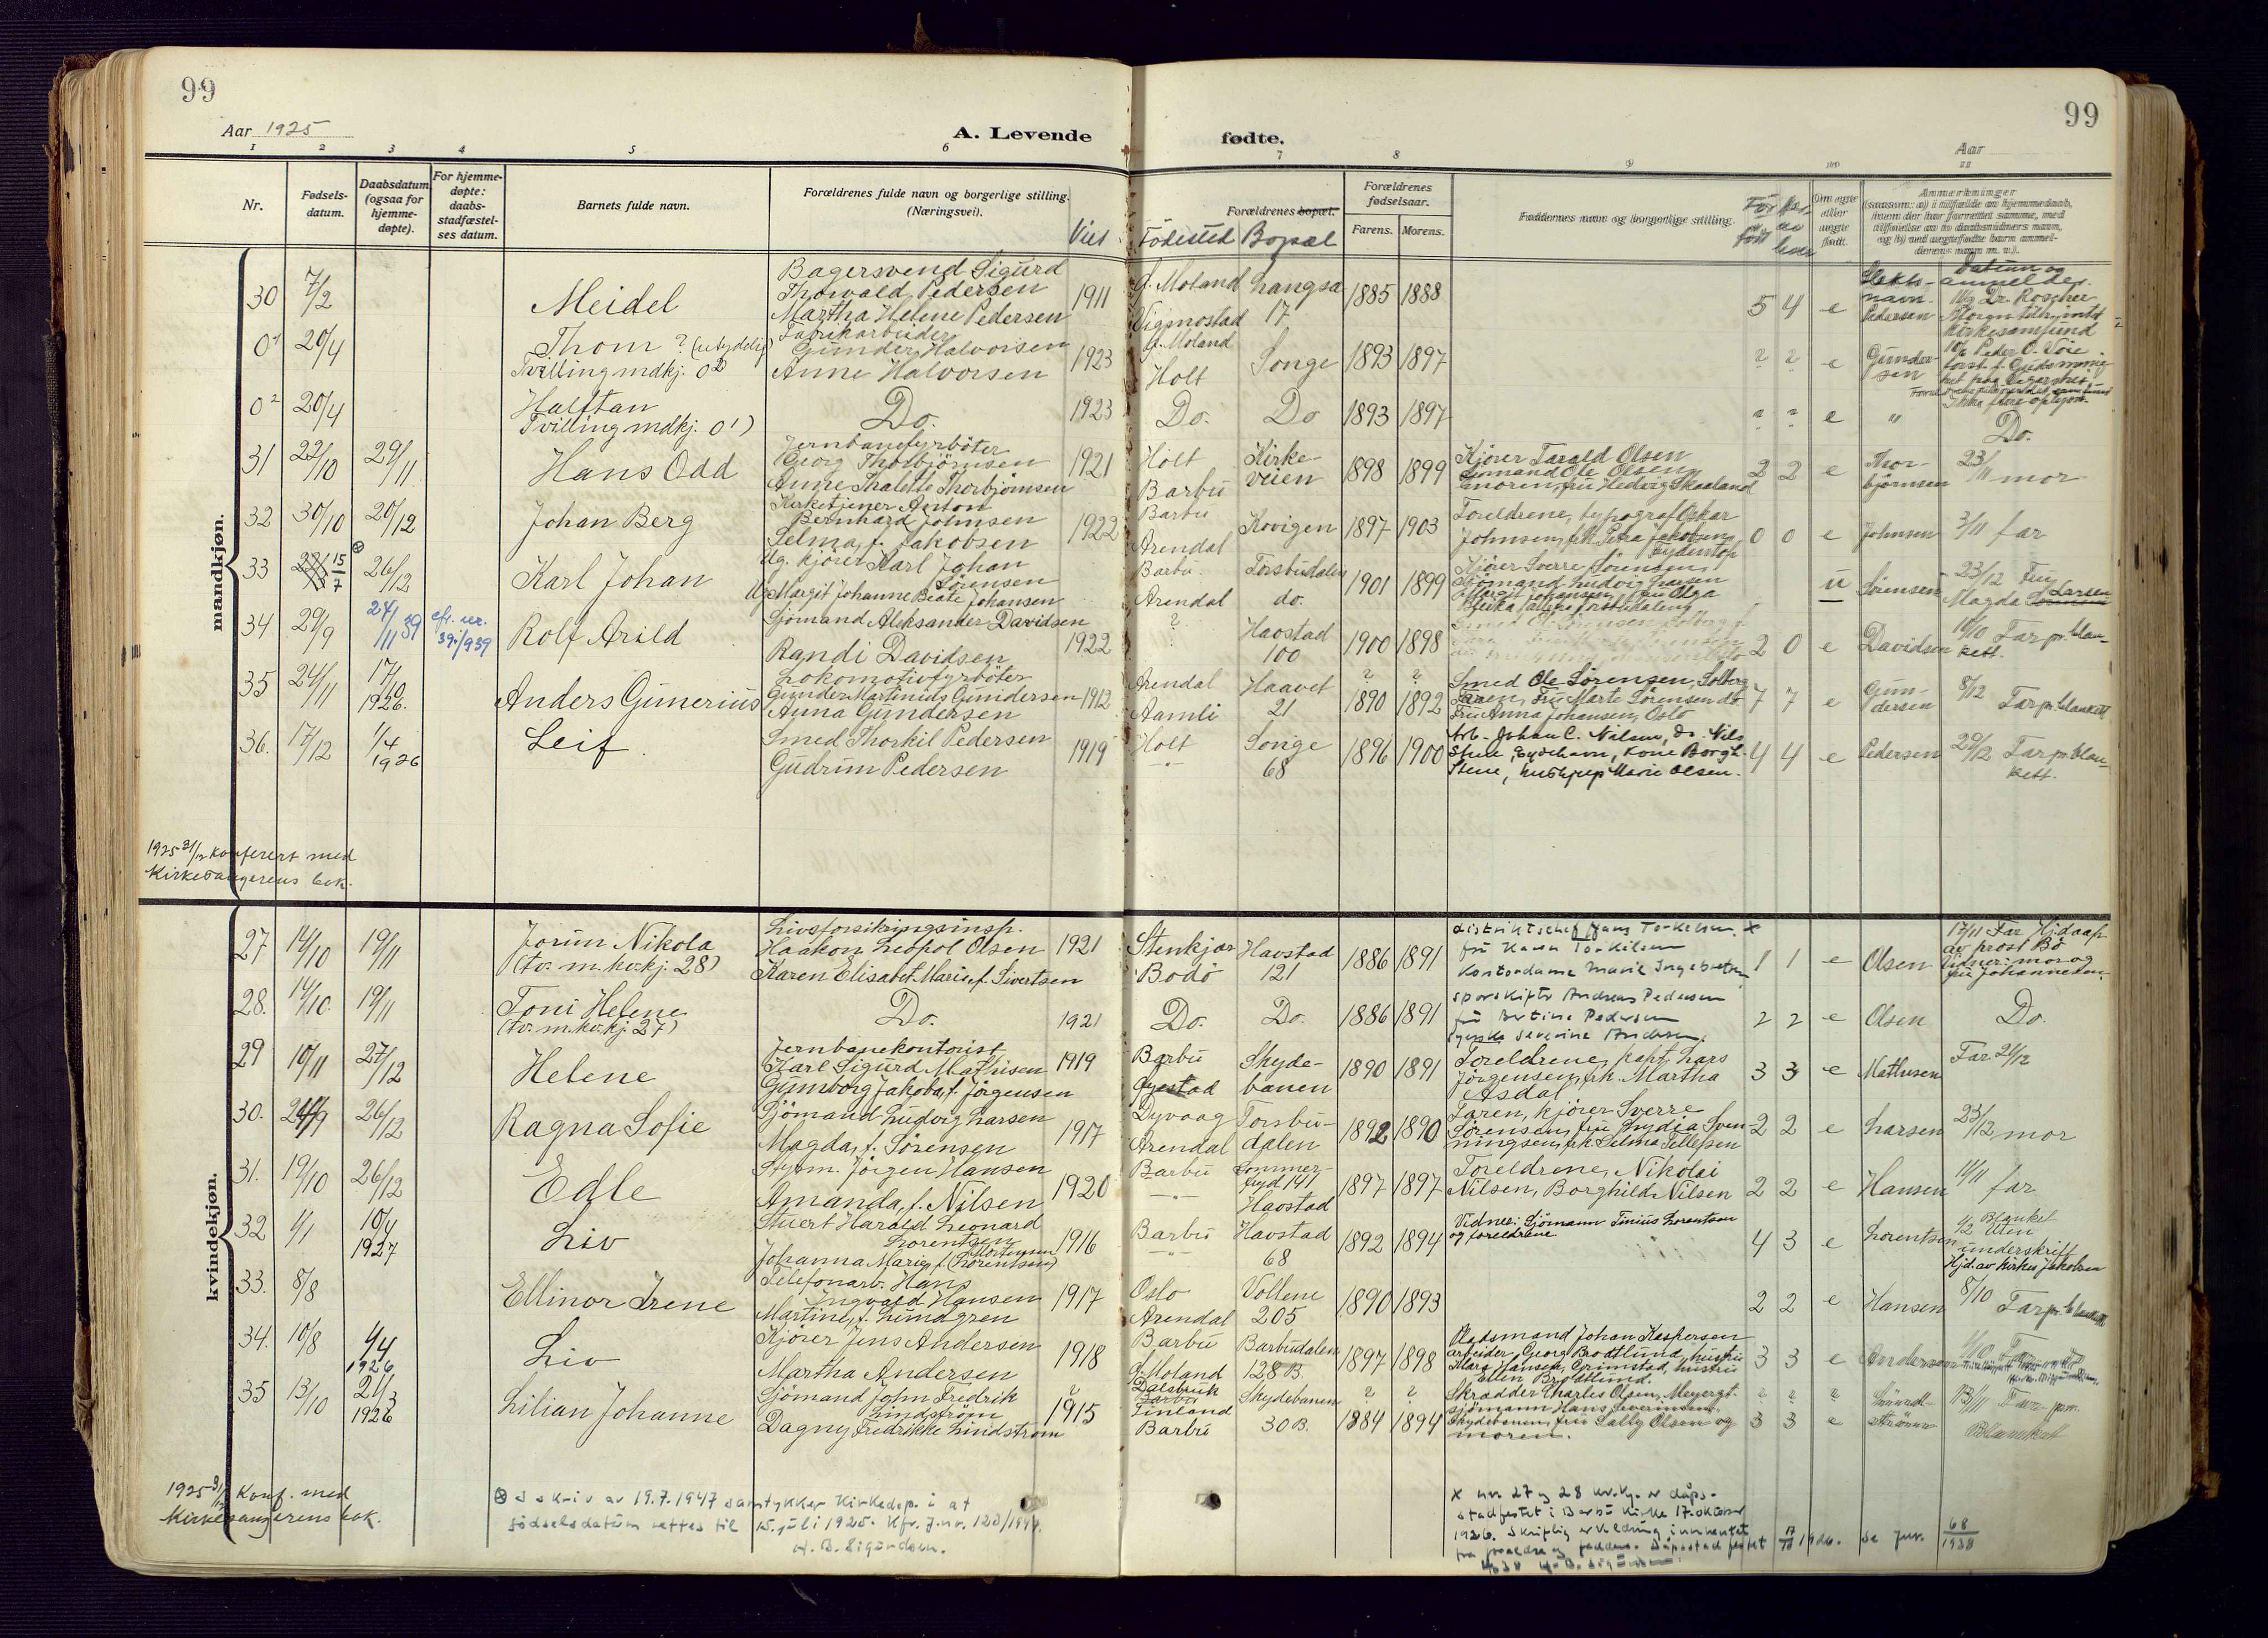 99
99
Aar 1925
A. Levende
fødte.
Aar
1 2 3 4 5 6 7 8 9 10 11
Nr.
Fødsels-
datum.
Daabsdatum
(ogsaa for
hjemme-
døpte).
For hjemme-
døpte:
daabs-
stadfæstel-
ses datum.
Barnets fulde navn.
Forældrenes fulde navn og borgerlige stilling.
(Næringsvei).
Viet
Forældrenes bopæl.
Födested Bopæl
Forældrenes
fødselsaar.
Farens. Morens.
Faddernes navn og borgerlige stilling.
Om egte
eller
uegte
født.
Anmerkninger
mandkjøn.
30 7/2
Meidel
Bagersvend Sigurd
Thorvald Pedersen
Martha Helene Pedersen
1911
Moland Langsæ
Vigmostad 17
1885 1888
5 4 e
Slekts-
navn.
Pedersen
Datum og
anmelder.
kirkesamfund
0¹ 20/4
Thom ? (utydelig)
Tvilling mdkj. 0²
Fabrikarbeider
Gunder Halvorsen
Anne Halvorsen
1923
Moland
Holt
Songe
1893 1897
? ? e
Gunder-
sen
0² 20/4
Halftan
Tvilling mdkj. 0¹)
Do.
1923
Do. Do
1893 1897
? ? e " Do.
31 22/10 29/11
Hans Odd
Jernbanefyrböter
Georg Thorbjörnsen
Anne Thalette Thorbjörnsen
1921
Holt
Barbu
Kirke-
veien
1898 1899
Kjörer Tarald Olsen
Sjömand Ole Olsen
moren, fru Hedvig Skaaland
2 2 e
Thor-
björnsen
23/11 mor
32 30/10 20/12
Johan Berg
Kirketjener Anton
Bernhard Johnsen
Selma, f. Jakobsen
1922
Barbu
Arendal
Kovigen
1897 1903
Foreldrene, typograf Oskar
Johnsen, frk. Petra Jakobsen,
0 0 e Johnsen 3/11 far
33 15/7 26/12
Karl Johan
Ug. kjörer Karl Johan
Sörensen
Ug. Margit Johanne Beate Johansen
Barbu
Arendal
Torsbudalen
do.
1901 1899
Kjörer Sverre Sörensen,
sjömand Ludvig Larsen
u Sørensen
23/12 Fru
Magda Larsen
34 29/9 24/11 39
39/939
Rolf Arild
Sjömand Aleksander Davidsen
Randi Davidsen
1922
?
Havstad
100
1900 1898
2 0 e Davidsen
10/10 Far pr. blan-
kett.
35 24/11 17/10
1926.
Anders Gunerius
Lokomotivfyrböter
Gunder Martinius Gundersen
Anna Gundersen
1912
Arendal
Aamli
Haavet
21
? ?
1890 1892
Smed Ole Sörensen, Solberg
Faren, Fru Marte Sörensen do
Fru Anna Johansen, Oslo
7 7 e
Gun-
dersen
8/12 Far pr. blankett
36. 17/12 1/4
1926
Leif.
Smed Thorkil Pedersen
Gudrun Pedersen
1919
Holt
—"—
Songe
68
1896 1900
Arb. Johan C. Nilsen, do. Nils
Stene, Eydehavn, kone Borgh.
Stene, hushjelp Marie Olsen.
4 4 e Pedersen
29/12 Far pr. blan-
kett.
1925 31/12 Konferert med
Kirkesangerens bok.
kvindekjøn.
27 14/10 19/11
Jorun Nikola
(tv. m. kv.kj. 28)
Livsforsikringsinsp.
Haakon Leopol Olsen
Karen Elisabet Marie f. Sivertsen
1921
Stenkjær
Bodö
Havstad
121
1886 1891
distriktschef Hans Torkelsen. x
fru Karen Torkilsen
Kontordame Marie Ingebretsen
1 1 e Olsen
17/11 Far Hj.daap
av prost Bö
Vidner: mor og
fru Johannesen.
28. 14/10 19/11
Toni Helene
(tv. m. kv.kj. 27)
Do.
1921
Do. Do.
1886 1891
sporskifter Andreas Pedersen
fru Bertine Pedersen
Severine Andersen.
2 2 e Olsen Do.
29 10/11 27/12
Helene
Jernbanekontorist
Karl Sigurd Mathisen
Gunvborg Jakoba, f. Jörgensen
1919
Barbu
Öyestad
Skyde-
banen
1890 1891
Foreldrene, kapt. Lars
Jörgensen, frk. Martha
Asdal
3 3 e Mathisen Far 24/12
30. 26/12
Ragna Sofie
Sjömand Ludvig Larsen
Magda, f. Sörensen
1917
Dyvaag
Arendal
Torsbu-
dalen
1892 1890
Faren, kjörer Sverre
Sörensen, fru Lydia Sven-
ningsen, frk. Selma Tellefsen
2 2 e Larsen 23/12 mor
31. 19/10 26/12
Edle
Styrm. Jörgen Hansen
Amanda, f. Nilsen
1920
Barbu
—"—
Sommer-
fryd 141
Havstad
1897 1897
Foreldrene, Nikolai
Nilsen, Borghild Nilsen
2 2 e Hansen 14/11 far
32 1/1 10/4
1927
Liv
Stuert Harald Leonard
Lorentsen
Johanna Marie, f. Mortensen (Lorentsen)
1916
Barbu
—"—
Havstad
68
1892 1894
Vidner: Sjömann Tinius Lorentsen
og foreldrene
4 3 e Lorentsen
Blanket
Uten
underskrift
33. 8/8
Ellinor Irene
Telefonarb. Hans
Ingvald Hansen
Martine, f. Lundgren
1917
Oslo
Arendal
Vollene
205
1890 1893
2 2 e Hansen 8/10 Far pr. blankett
34. 10/8 4/4
1926
Liv
Kjörer Jens Andersen
Martha Andersen
1918
Barbu
Moland
Barbudalen
128 B.
1897 1898
Pladsmand Johan Kaspersen
arbeider, Georg Brodtlund, hustru
Klara Hansen, Grimstad, hustru
Ellen Brodtlund.
3 3 e Andersen
35 13/10 21/3
1926
Lilian Johanne
Sjömand John Fredrik
Lindström
Dagny Fredrikke Lindström
?
1915
Dalsbruk
Finland
Barbu
Skydebanen
30 B.
? ?
1884 1894
Skrædder Charles Olsen, Meyergt.
sjömann Hans Severinsen,
Skydebanen, fru Salby Olsen og
moren.
3 3 e
Lind-
ström
13/11 Far pr.
Blanket
1925 31/12 Konf. med
Kirkesangerens bok.
⊗ I skriv av 19.7.1947 samtykker Kirkedep. i at
födselsdatum rettes til 15. juli 1925. Kfr. J.nr. 123/1947.
H. B. Sigurdsen.
x nr. 27 og 28 kv.kj. er dåps-
stadfestet i Barbu Kirke 17. oktober
1926. Skriftlig erklæring innhentet
fra foreldre og faddere. Dåpsstadfestet 17/10 1926. Se jnr. 68/1938